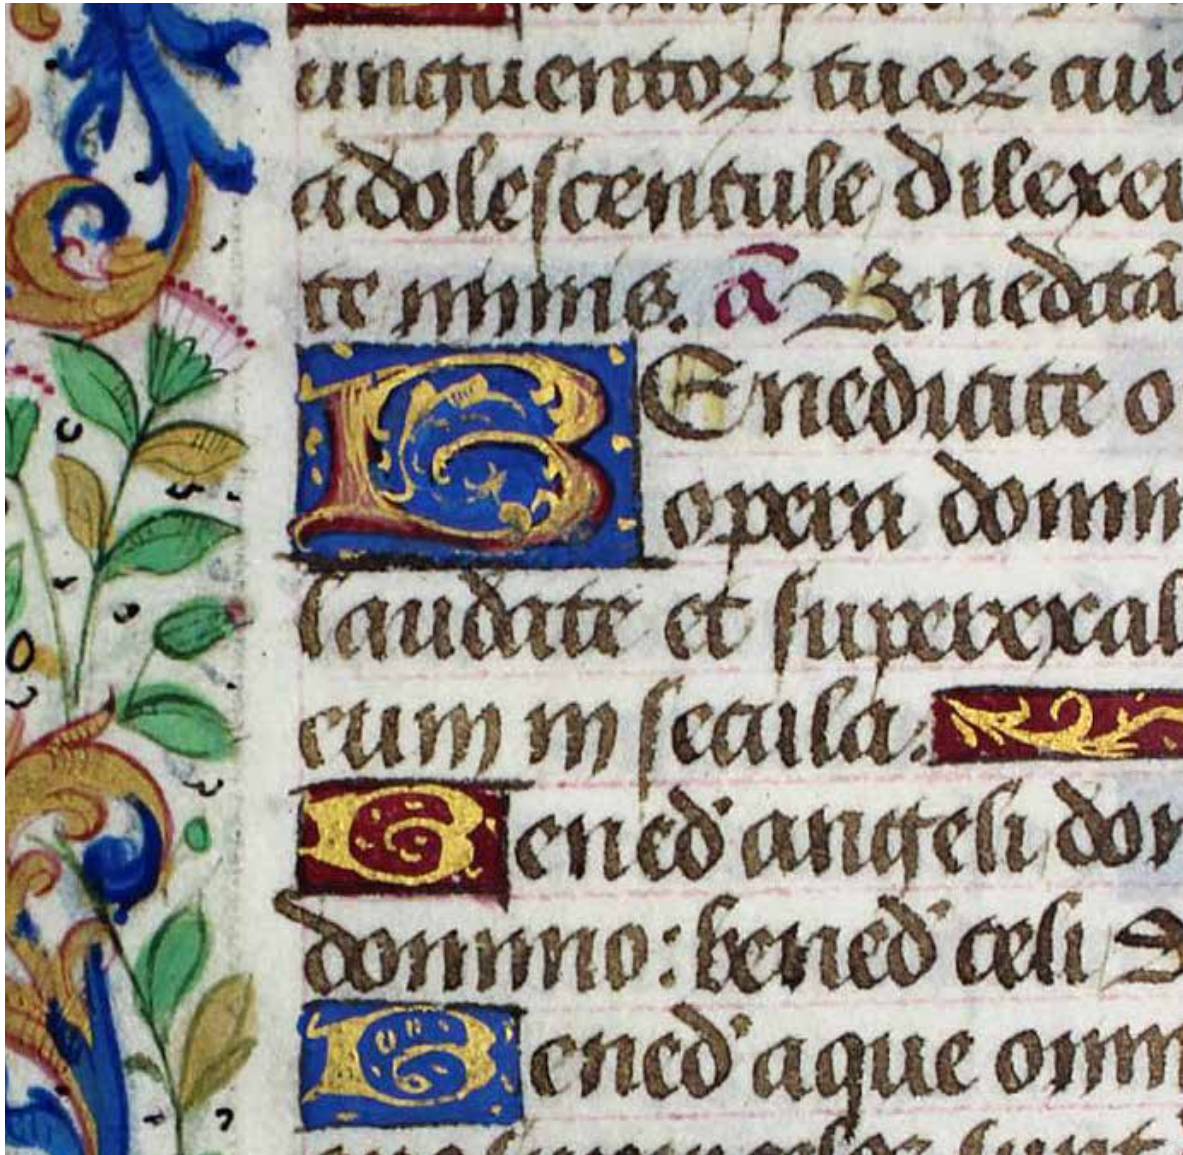 unguentoꝝ tuoꝝ cur
adolescentule dilexer
te nimis. a͞ Benedictā
BEnedicite o
opera domin
laudate et superexal
eum in secula.
Bened' angeli dom
domino: bened' celi D
Bened' aque omn